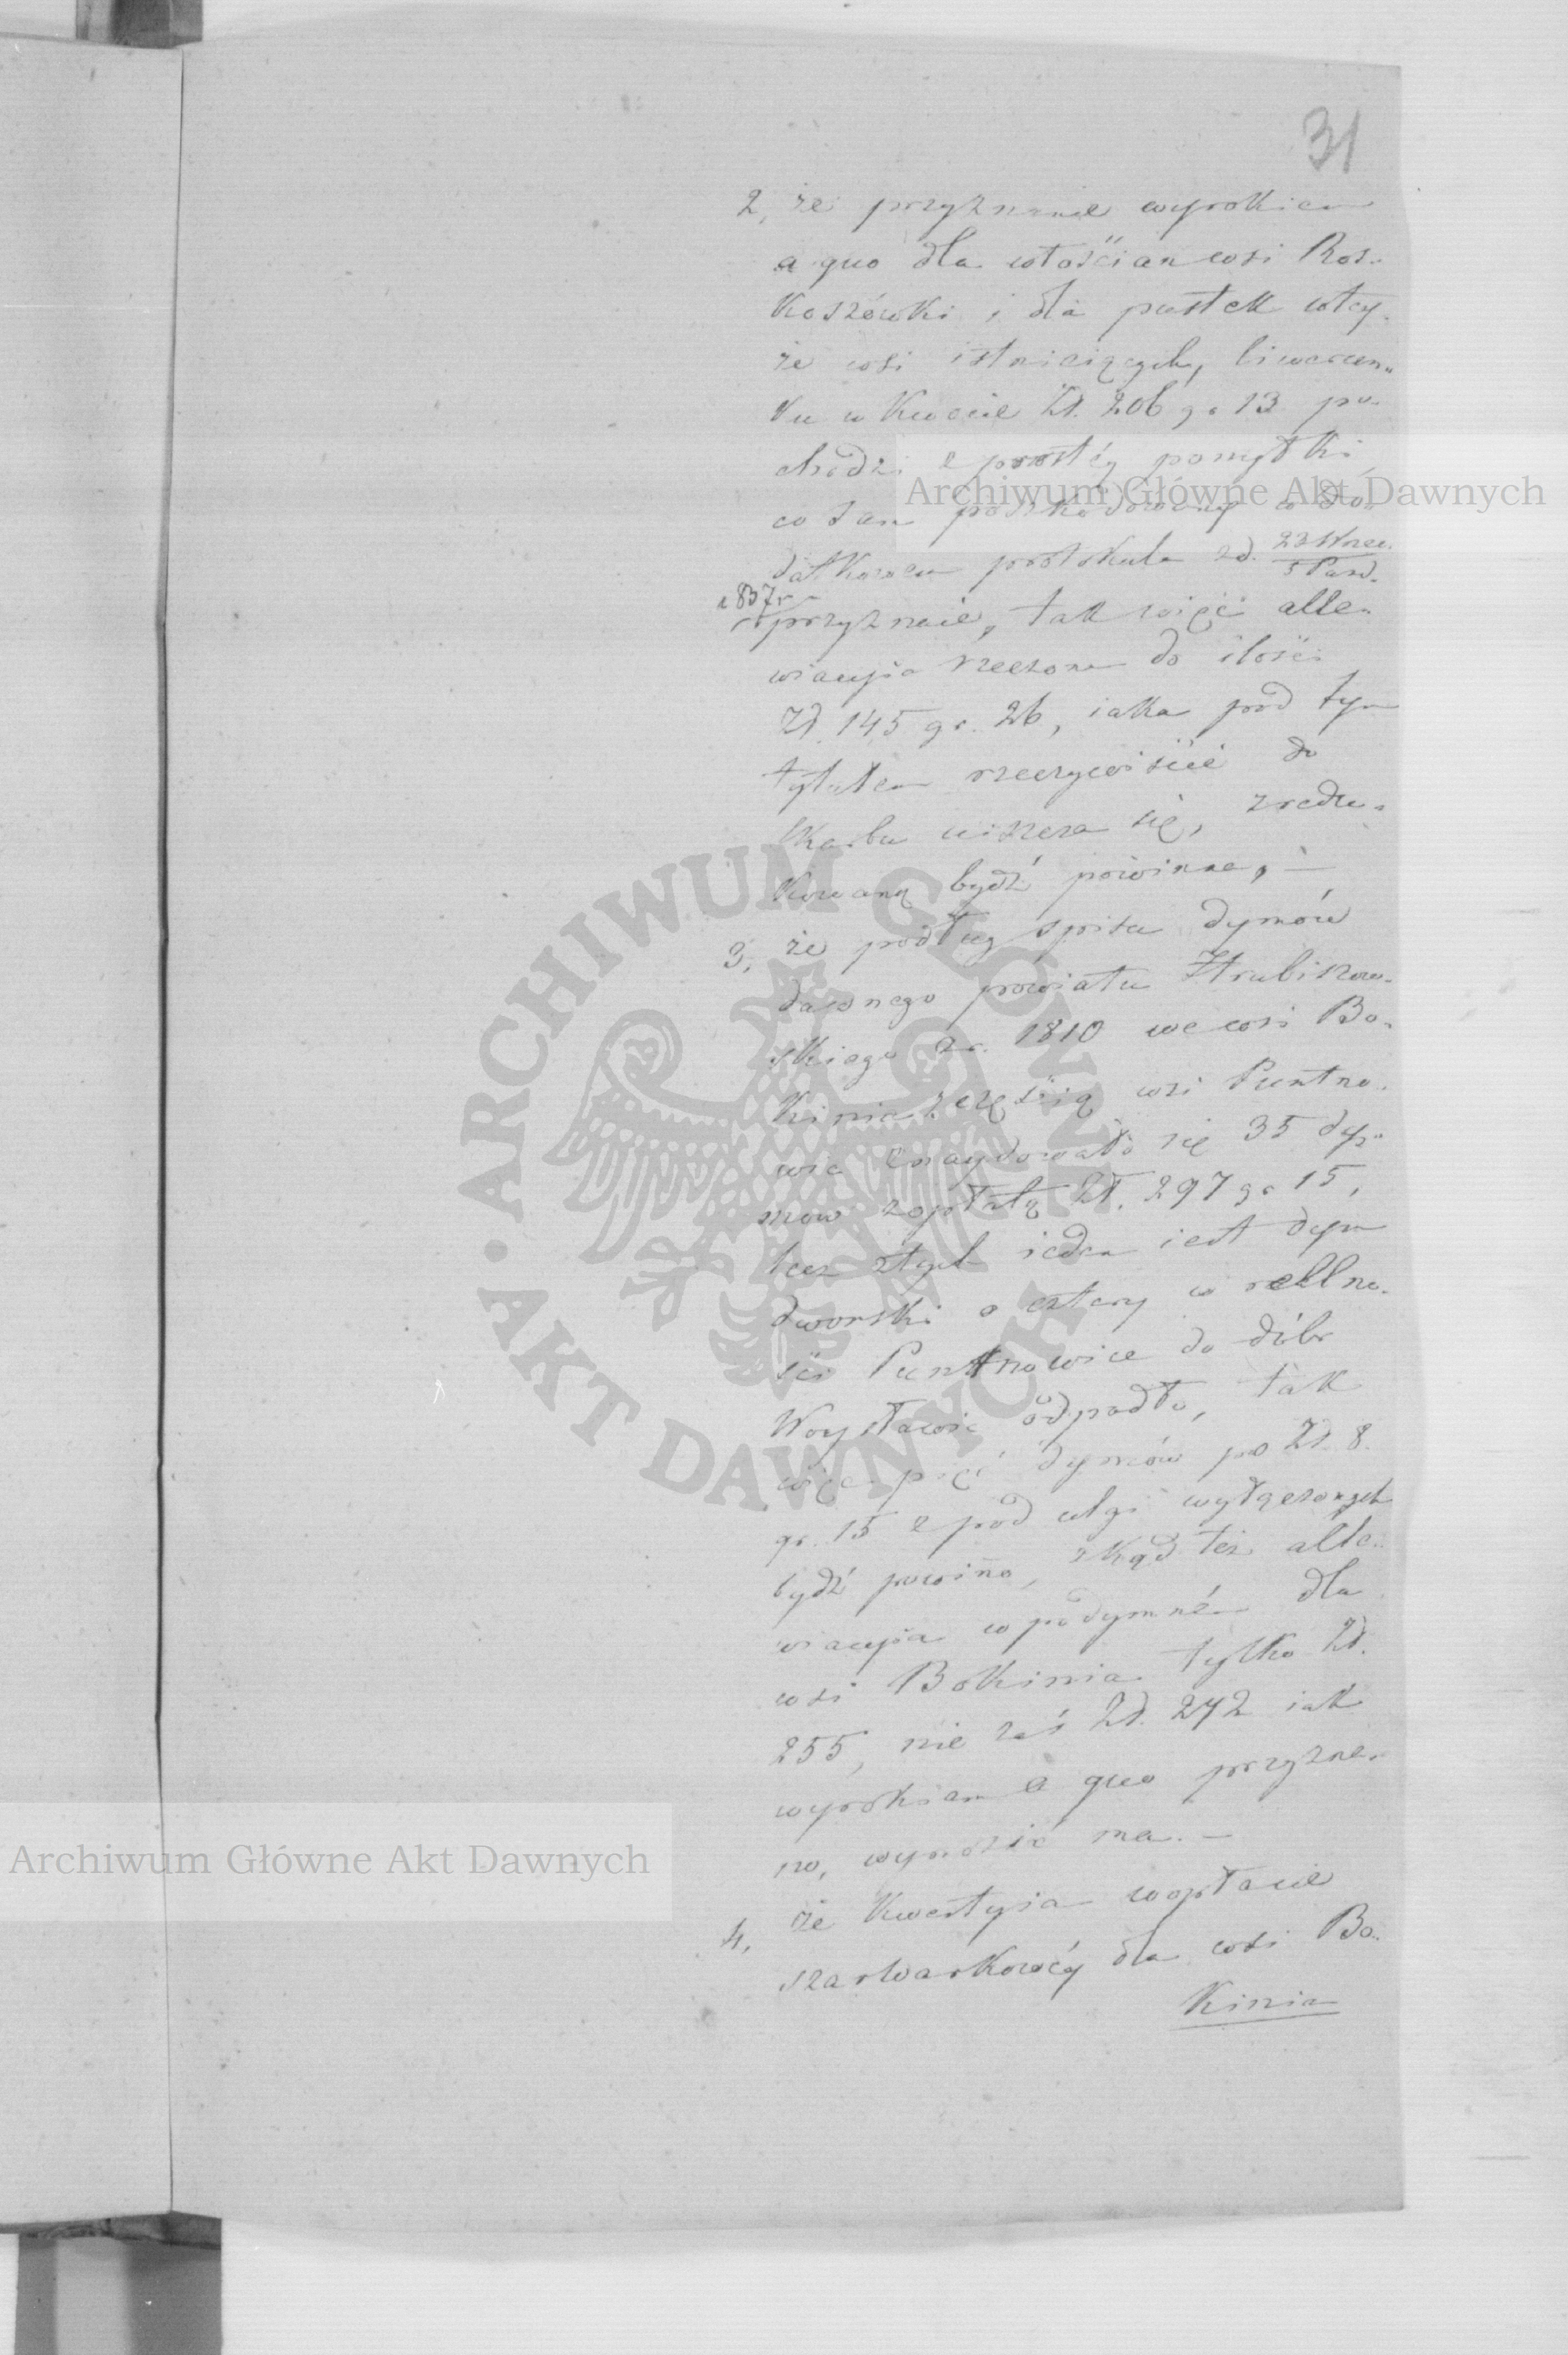 31
2, że przyznanie wyrokiem
a quo dla włościan wsi Ros-
koszówki i dla pustek wtey-
że wsi istnieiących, liweren-
ku w kwocie Zł. 206 gr 13 po-
chodzi z prostéy pomyłki,
co sam poszkodowany w do-
datkowem protokule z d. 23 Wrze./5 Paźd.
1837 r
przyznaie, tak więc alle-
wiacyia rzeczona do ilości
Zł. 145 gr. 26, iaka pod tym
tytułem rzeczywiście do
skarbu uiszcza się, zredu-
kowaną bydź powinna, —
3, że podług spisu dymów
dawnego powiatu Hrubieszow-
skiego z r. 1810 we wsi Bo-
kinia z częścią wsi Puntno-
wic znaydowało się 35 dy-
mów z opłatą Zł. 297 gr 15,
lecz z tych ieden iest dym
dworski a cztery w realno-
ści Puntnowice do dóbr
Woysławic odpadło, tak
więc pięć dymów po Zł. 8.
gr. 15 z pod ulgi wyłączonych
bydź powinno, zkąd też alle-
wiacyia w podymném dla
wsi Bokinia tylko Zł.
255, nie zaś Zł. 272 iak
wyrokiem a quo przyzna-
no, wynosić ma. —
4, że kwestyia w opłacie
szarwarkowéy dla wsi Bo-
kinia
Archiwum Główne Akt Dawnych
Archiwum Główne Akt Dawnych
ARCHIWUM GŁÓWNE AKT DAWNYCH